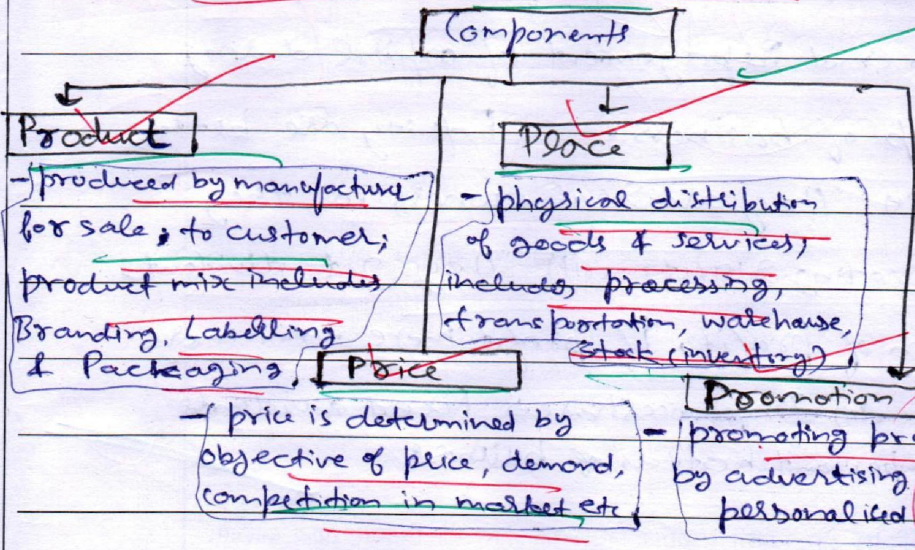 Components
Product
- produced by manufacture
for sale; to customer;
product mix includes
Branding, Labelling
& Packaging.
Place
- physical distribution
of goods & services,
includes processing,
transportation, warehouse,
stock (inventory)
Price
- price is determined by
objective of price, demand,
competition in market etc.
Promotion
- promoting pro
by advertising
personalised